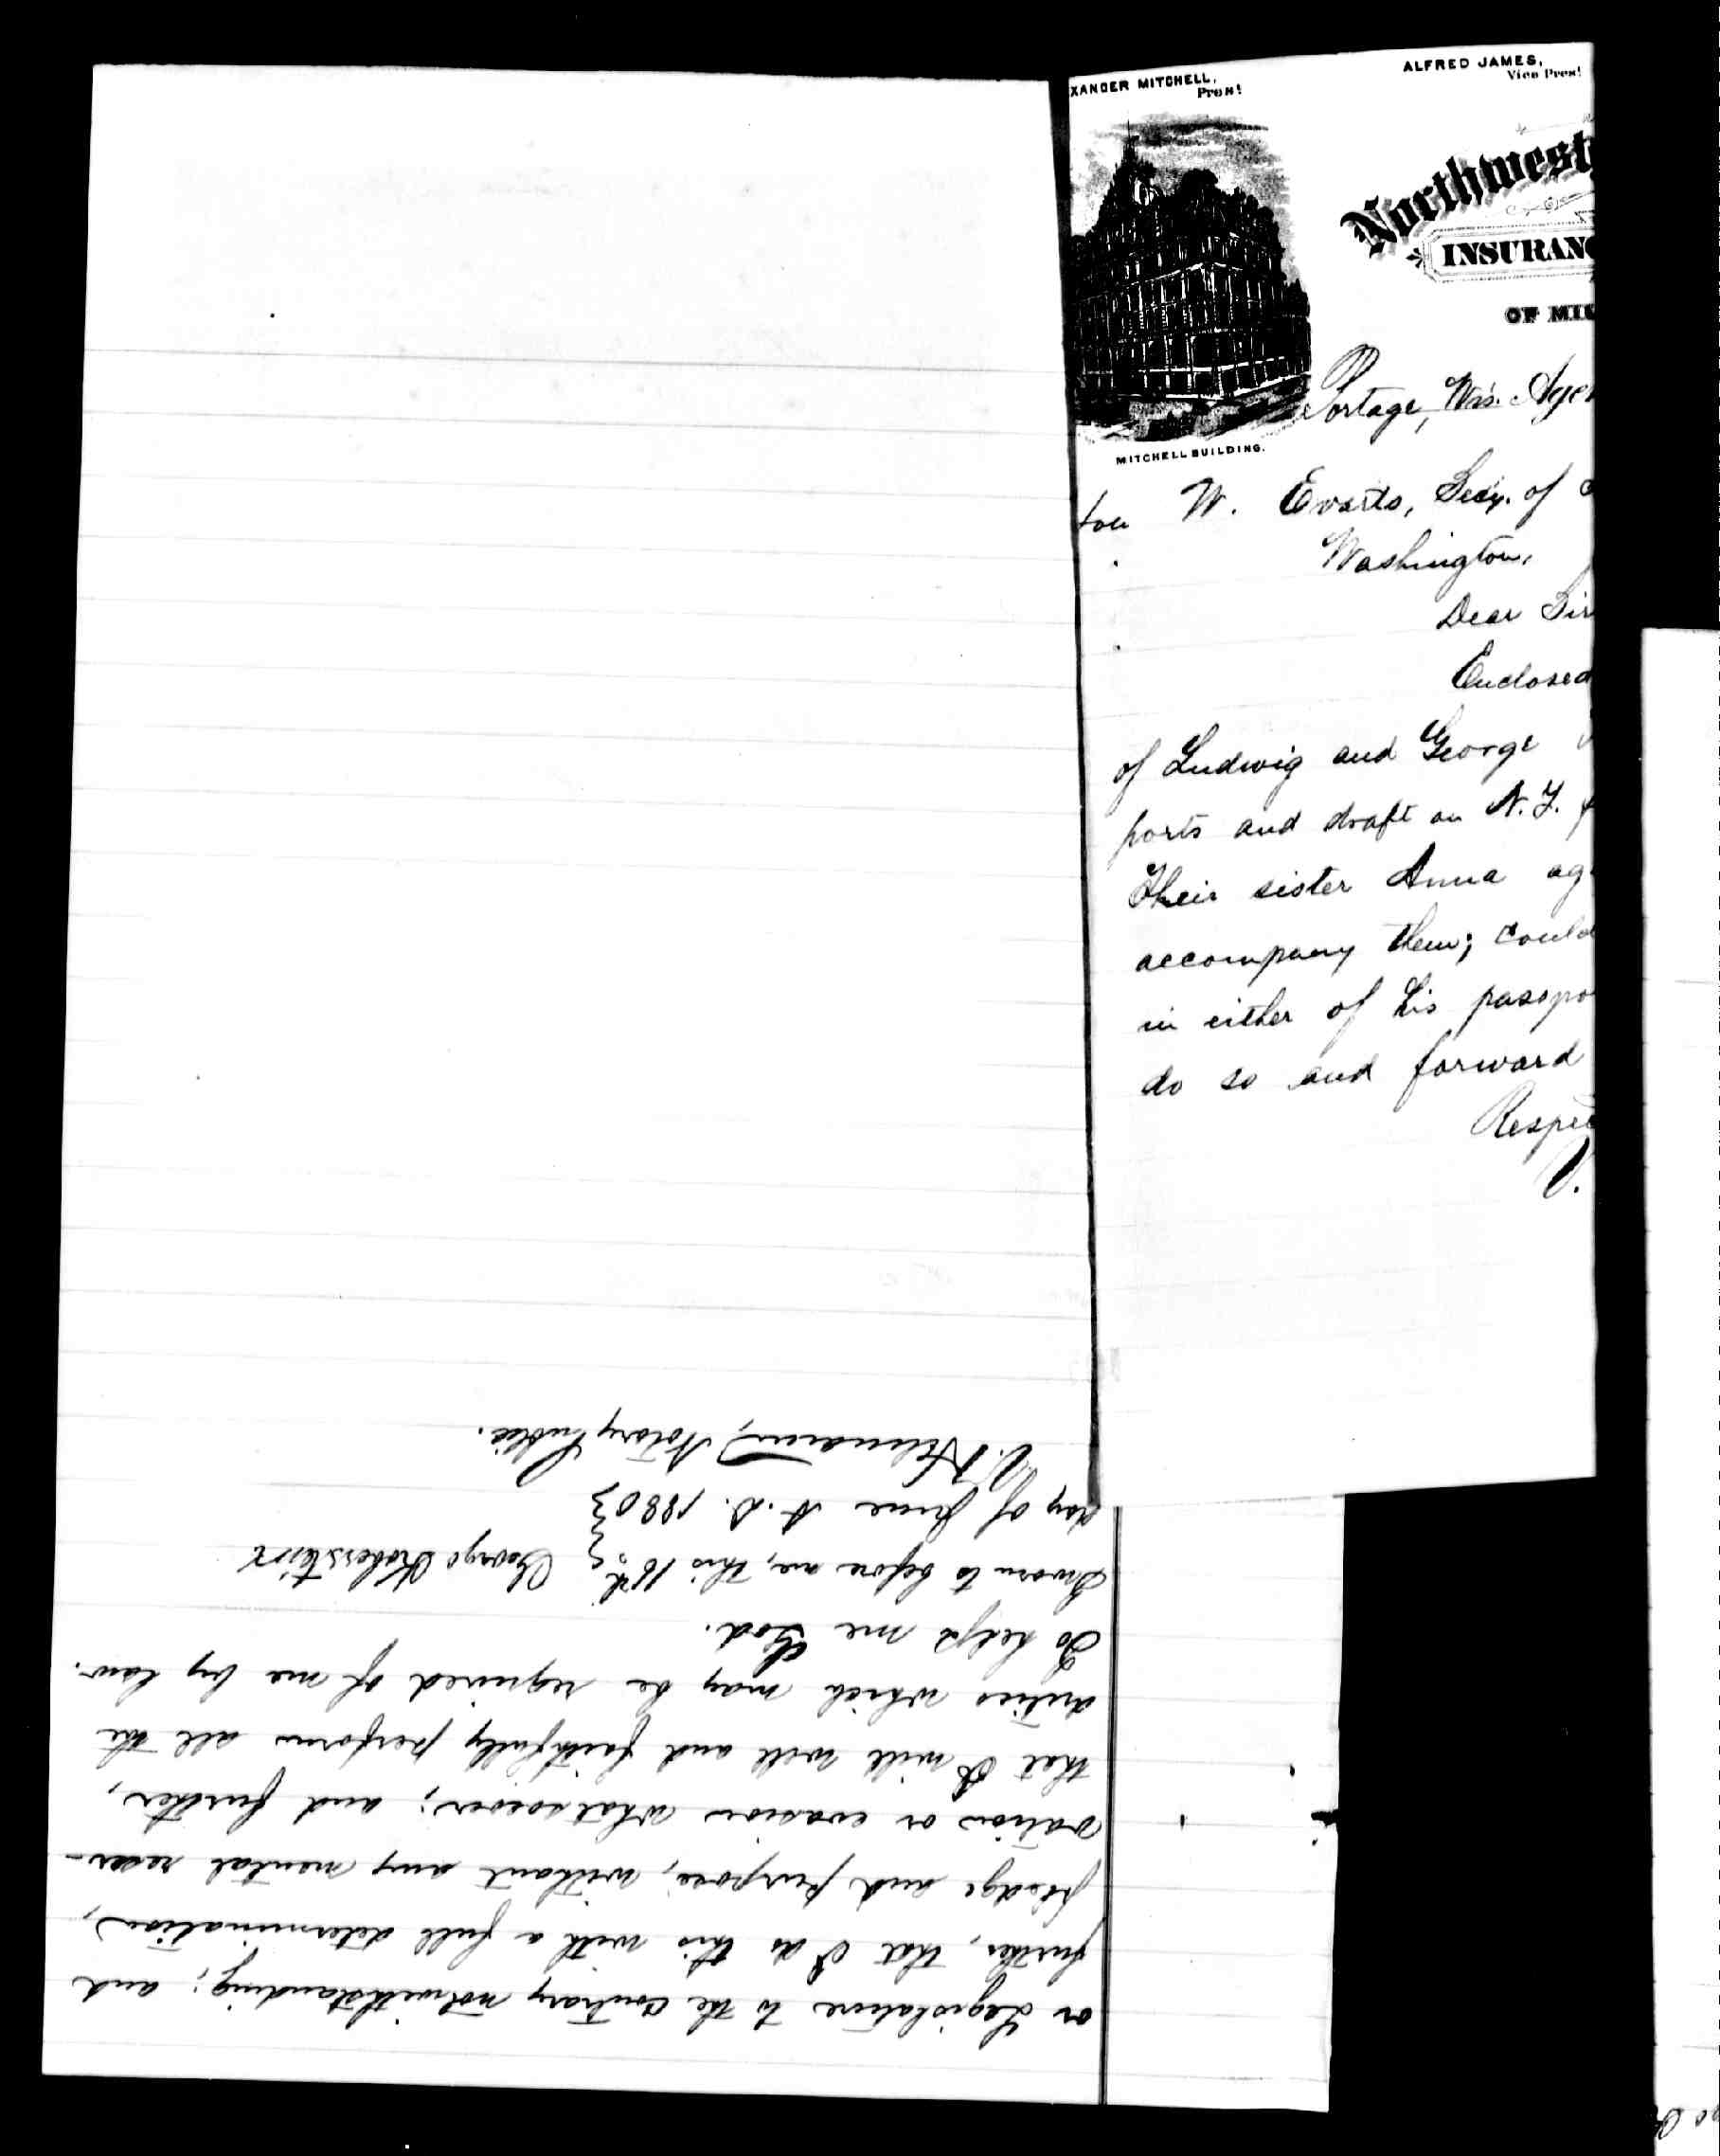 XANDER MITCHELL,
Pres!
ALFRED JAMES,
Vice Pres!
Northwest
INSURANC
OF MIL
MITCHELL BUILDING.
Portage, Wis. Agen
Hon W. Evarts, Secy. of
Washington,
Dear Sir
Enclosed
of Ludwig and George
ports and draft on N.Y.
Their sister Anna ag
accompany them; could
in either of his passpo
do so and forward
Respec
V.
or Legislature to the contrary notwithstanding; and
further, that I do this with a full determination,
pledge and purpose, without any mental reser-
vation or evasion whatsoever; and further,
that I will well and faithfully perform all the
duties which may be required of me by law.
So help me God.
Sworn to before me, this 18th
George Koberstein
day of June A.D. 1880
V. Helmann, Notary Public.